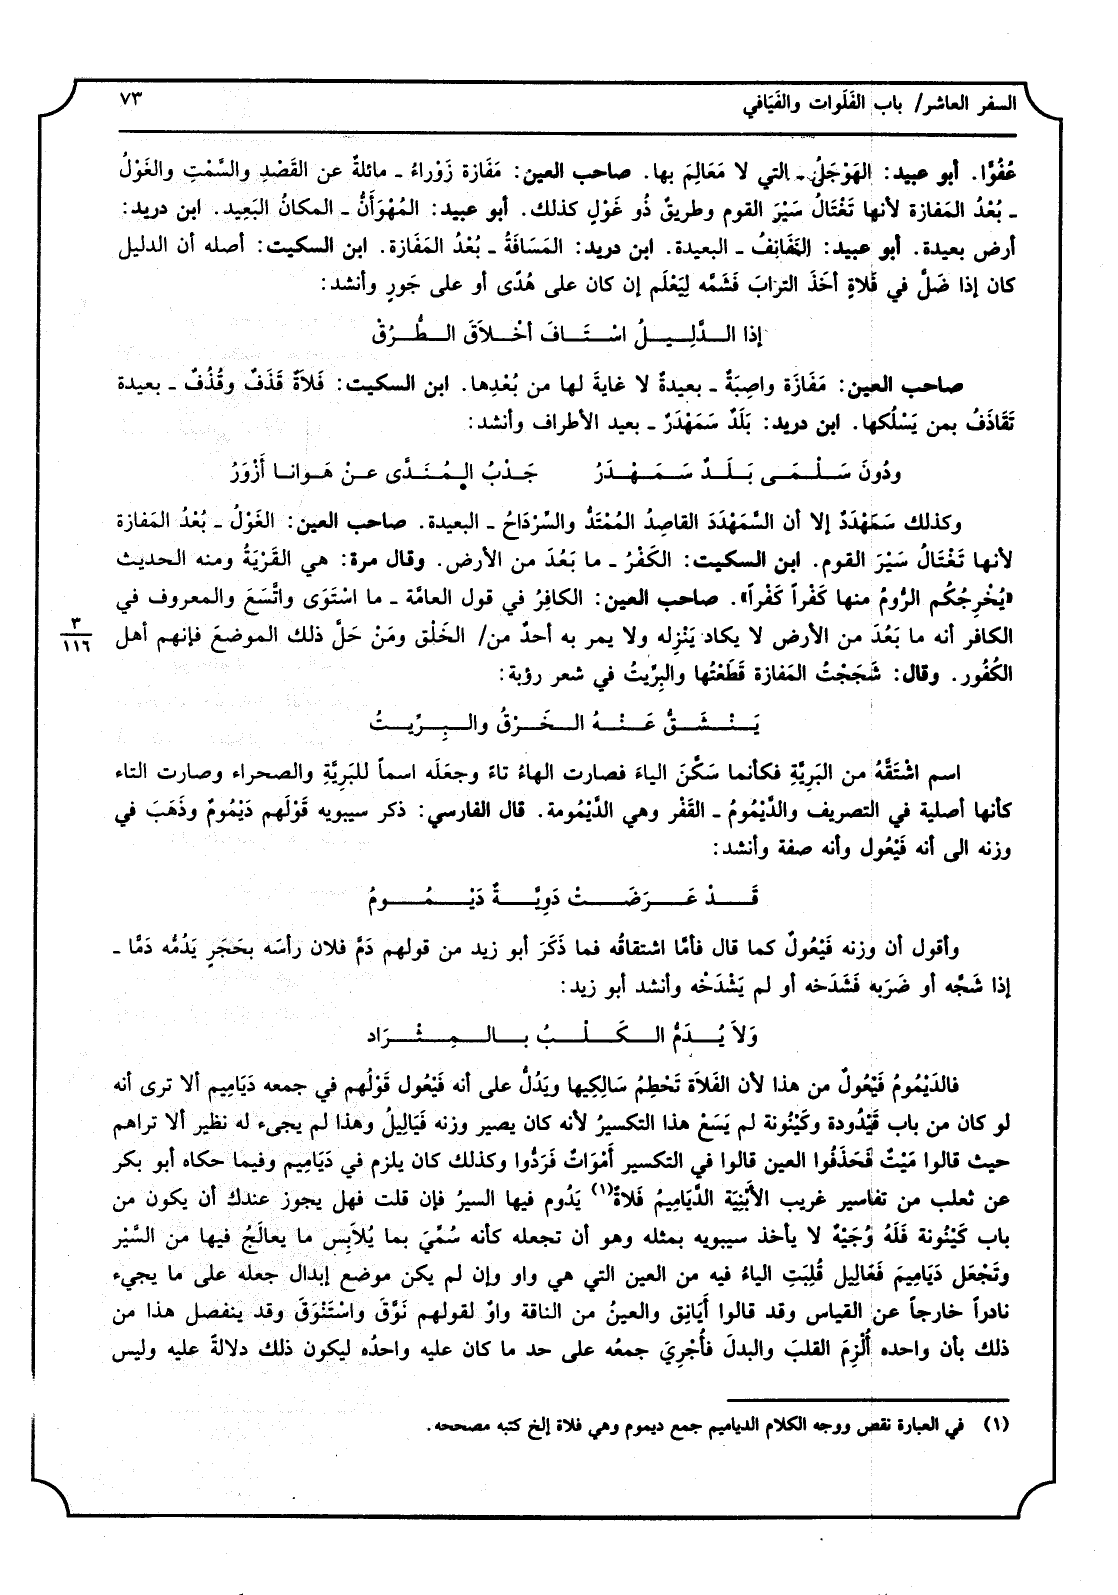 السفر العاشر/ باب الفَلَوات والفَيَافي ٧٣
عُفُوًّا. أبو عبيد: الهَوْجَلُ ـ التي لا مَعَالِمَ بها. صاحب العين: مَفَازة زَوْراءُ ـ مائلةٌ عن القَصْدِ والسَّمْتِ والغَوْلُ
ـ بُعْدُ المَفازة لأنها تَغْتَالُ سَيْرَ القوم وطريقٌ ذُو غَوْلٍ كذلك. أبو عبيد: المُهْوَأَنُّ ـ المكانُ البَعِيد. ابن دريد:
أرض بعيدة. أبو عبيد: النَّفَانِفُ ـ البعيدة. ابن دريد: المَسَافَةُ ـ بُعْدُ المَفَازة. ابن السكيت: أصله أن الدليل
كان إذا ضَلَّ في فَلاةٍ أخَذَ الترابَ فَشَمَّه لِيَعْلَم إن كان على هُدًى أو على جَورٍ وأنشد:
إذا الـدَّلِيـلُ اسْتَـافَ أخْـلاَقَ الـطُّـرُقْ
صاحب العين: مَفَازَة واصِبَةٌ ـ بعيدةٌ لا غايةَ لها من بُعْدِها. ابن السكيت: فَلاَةٌ قَذَفٌ وقُذُفٌ ـ بعيدة
تَقَاذَفُ بمن يَسْلُكها. ابن دريد: بَلَدٌ سَمَهْدَرٌ ـ بعيد الأطراف وأنشد:
ودُونَ سَلْمَى بَلَدٌ سَمَهْدَرُ جَدْبُ المُنَدَّى عـنْ هَـوانـا أَزْوَرُ
وكذلك سَمَهْدَدٌ إلا أن السَّمَهْدَدَ القاصِدُ المُمْتَدُّ والسِّرْدَاحُ ـ البعيدة. صاحب العين: الغَوْلُ ـ بُعْدُ المَفازة
لأنها تَغْتَالُ سَيْرَ القوم. ابن السكيت: الكَفْرُ ـ ما بَعُدَ من الأرض. وقال مرة: هي القَرْيَةُ ومنه الحديث
«يُخْرِجُكُم الرُّومُ منها كَفْراً كَفْراً». صاحب العين: الكافِرُ في قول العامَّة ـ ما اسْتَوَى واتَّسَعَ والمعروف في
الكافر أنه ما بَعُدَ من الأرض لا يكاد يَنْزِله ولا يمر به أحدٌ من/ الخَلْق ومَنْ حَلَّ ذلك الموضعَ فإنهم أهل
٣
١١٦
الكُفُور. وقال: شَجَجْتُ المَفازة قَطَعْتُها والبِرِّيتُ في شعر رؤبة:
يَـنْـشَـقُّ عَـنْـهُ الـخَـرْقُ والـبِـرِّيـتُ
اسم اشْتَقَّهُ من البَرِيَّةِ فكأنما سَكَّنَ الياءَ فصارت الهاءُ تاءً وجعَلَه اسماً للبَرِيَّةِ والصحراء وصارت التاء
كأنها أصلية في التصريف والدَّيْمُومُ ـ القَفْر وهي الدَّيْمُومة. قال الفارسي: ذكر سيبويه قَوْلَهم دَيْمُومٌ وذَهَبَ في
وزنه الى أنه فَيْعُول وأنه صفة وأنشد:
قَـدْ عَـرَضَـتْ دَوِيَّـةٌ دَيْـمُـومُ
وأقول أن وزنه فَيْعُولٌ كما قال فأمَّا اشتقاقُه فما ذَكَرَ أبو زيد من قولهم دَمَّ فلان رأسَه بحَجَرٍ يَدُمُّه دَمًّا ـ
إذا شَجَّه أو ضَرَبه فَشَدَخه أو لم يَشْدَخْه وأنشد أبو زيد:
وَلاَ يُـدَمُّ الـكَـلْـبُ بـالـمِـثْـرَاد
فالدَيْمُومُ فَيْعُولٌ من هذا لأن الفَلاَة تَحْطِمُ سَالِكِيها ويَدُلُّ على أنه فَيْعُول قَوْلُهم في جمعه دَيَامِيم ألا ترى أنه
لو كان من باب قَيْدُودة وكَيْنُونة لم يَسَعْ هذا التكسيرُ لأنه كان يصير وزنه فَيَالِيلُ وهذا لم يجىء له نظير ألا تراهم
حيث قالوا مَيْتٌ فَحَذَفُوا العين قالوا في التكسير أَمْوَاتٌ فَرَدُّوا وكذلك كان يلزم في دَيَامِيم وفيما حكاه أبو بكر
عن ثعلب من تفاسير غريب الأَبْنِيَة الدَّيَامِيمُ فَلاَةٌ(١) يَدُوم فيها السيرُ فإن قلت فهل يجوز عندك أن يكون من
باب كَيْنُونة فَلَهُ وُجَيْهٌ لا يأخذ سيبويه بمثله وهو أن تجعله كأنه سُمِّيَ بما يُلاَبِس ما يعالَجُ فيها من السَّيْر
وتَجْعَل دَيَامِيمَ فَعَالِيل قُلِبَتِ الياءُ فيه من العين التي هي واو وإن لم يكن موضع إبدال جعله على ما يجيء
نادراً خارجاً عن القياس وقد قالوا أَيَانِق والعينُ من الناقة واوٌ لقولهم نَوَّقَ واسْتَنْوَقَ وقد ينفصل هذا من
ذلك بأن واحده أُلْزِمَ القلبَ والبدلَ فأُجْرِيَ جمعُه على حد ما كان عليه واحدُه ليكون ذلك دلالةً عليه وليس
(١) في العبارة نقص ووجه الكلام الدياميم جمع ديموم وهي فلاة إلخ كتبه مصححه.